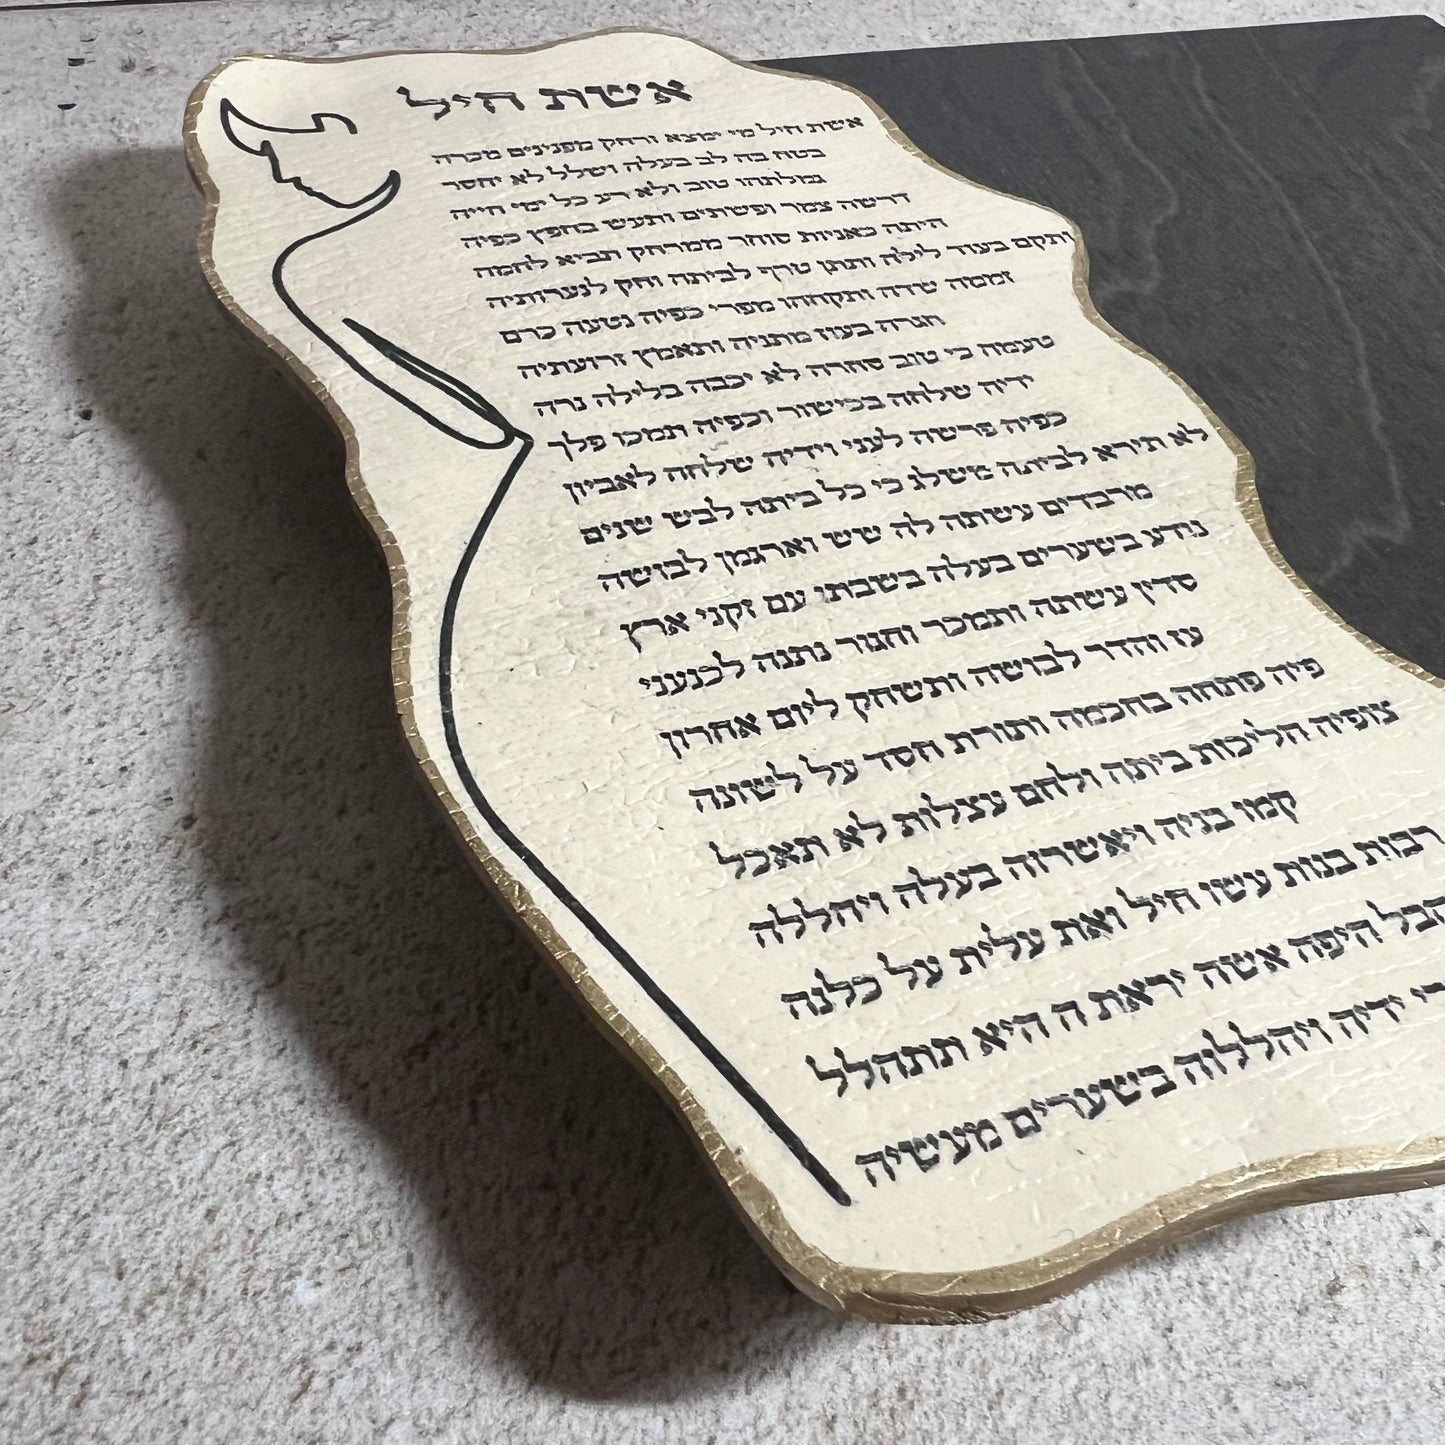 אשת חיל
אשת חיל מי ימצא ורחק מפנינים מכרה
בטח בה לב בעלה ושלל לא יחסר
גמלתהו טוב ולא רע כל ימי חייה
דרשה צמר ופשתים ותעש בחפץ כפיה
היתה כאניות סוחר ממרחק תביא לחמה
ותקם בעוד לילה ותתן טרף לביתה וחק לנערותיה
זממה שדה ותקחהו מפרי כפיה נטעה כרם
חגרה בעוז מתניה ותאמץ זרועתיה
טעמה כי טוב סחרה לא יכבה בלילה נרה
ידיה שלחה בכישור וכפיה תמכו פלך
כפיה פרשה לעני וידיה שלחה לאביון
לא תירא לביתה משלג כי כל ביתה לבש שנים
מרבדים עשתה לה שש וארגמן לבושה
נודע בשערים בעלה בשבתו עם זקני ארץ
סדין עשתה ותמכר וחגור נתנה לכנעני
עז והדר לבושה ותשחק ליום אחרון
פיה פתחה בחכמה ותורת חסד על לשונה
צופיה הליכות ביתה ולחם עצלות לא תאכל
קמו בניה ויאשרוה בעלה ויהללה
רבות בנות עשו חיל ואת עלית על כלנה
הבל היפה אשה יראת ה היא תתהלל
ידיה ויהללוה בשערים מעשיה